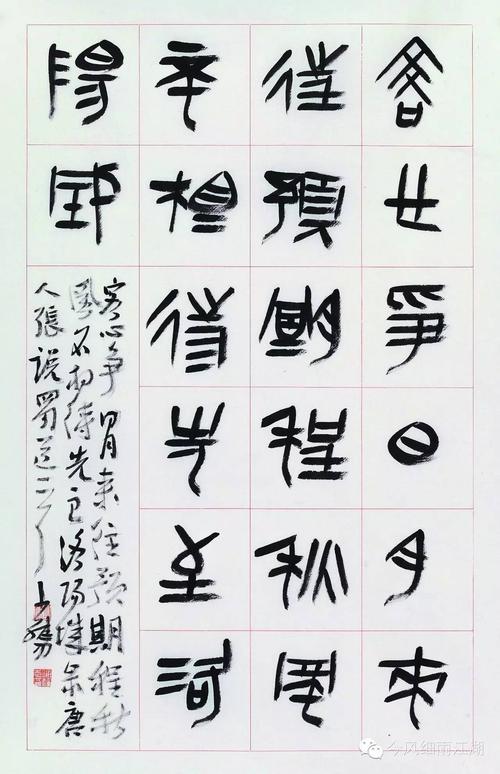 客心爭日月來
往預期程秋風
不相待先至洛
陽城
客心争日月来往预期程秋
風不相待先至洛陽城录唐
人張说蜀道
今风细雨江湖